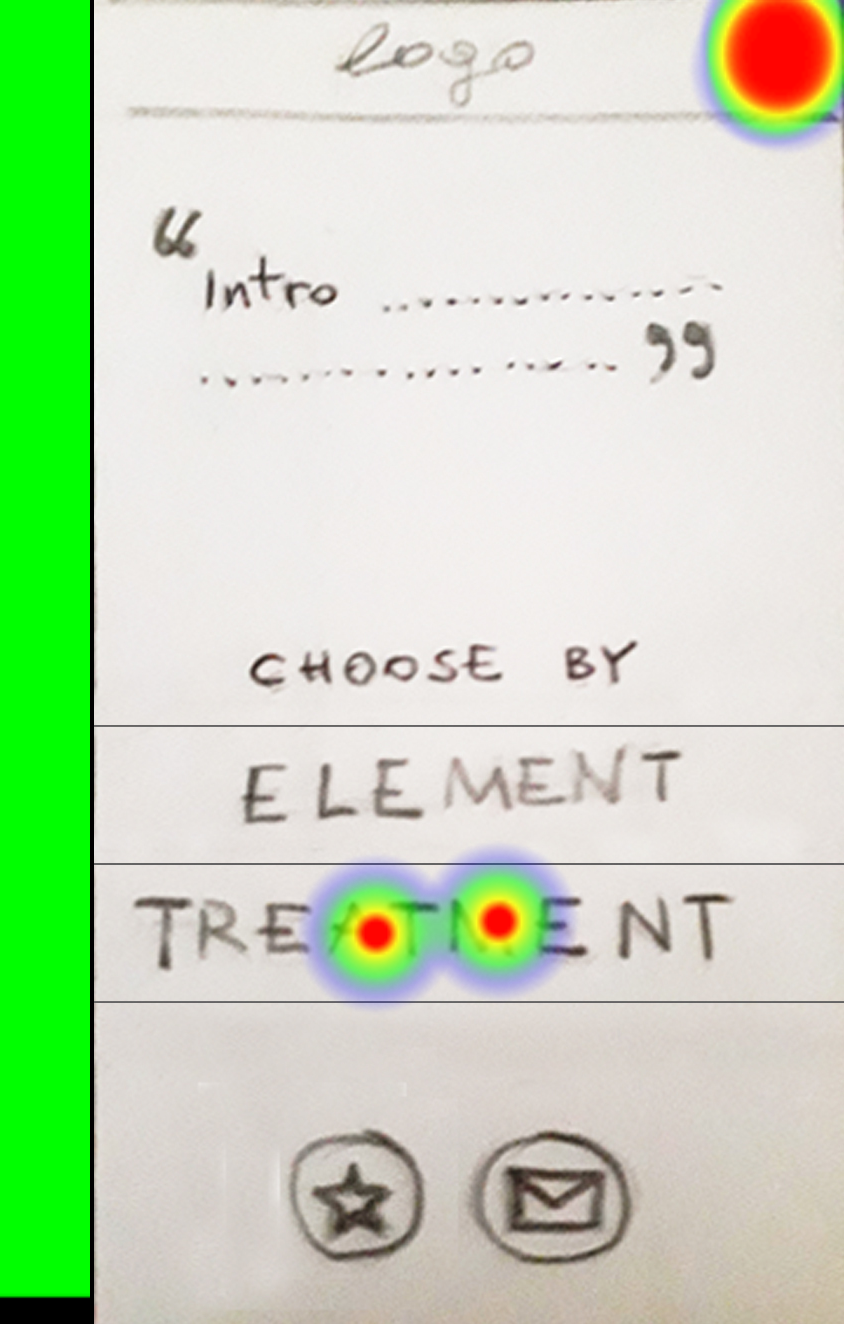 logo
“Intro ..................
.................. ”
CHOOSE BY
ELEMENT
TREATMENT